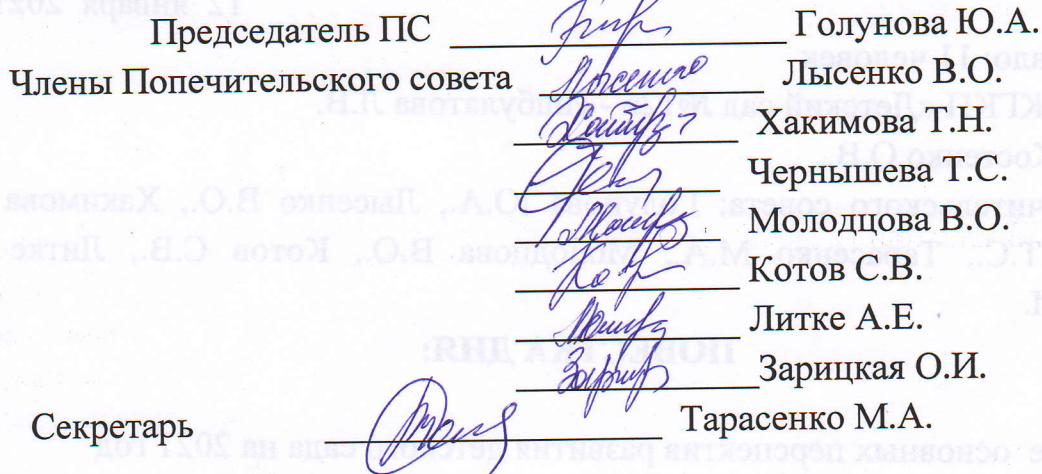 Председатель ПС Голунова Ю.А.
Члены Попечительского совета Лысенко Лысенко В.О.
Хакимова Т.Н.
Чернышева Т.С.
Молодцова В.О.
Котов С.В.
Литке А.Е.
Зарицкая О.И.
Секретарь Тарасенко М.А.